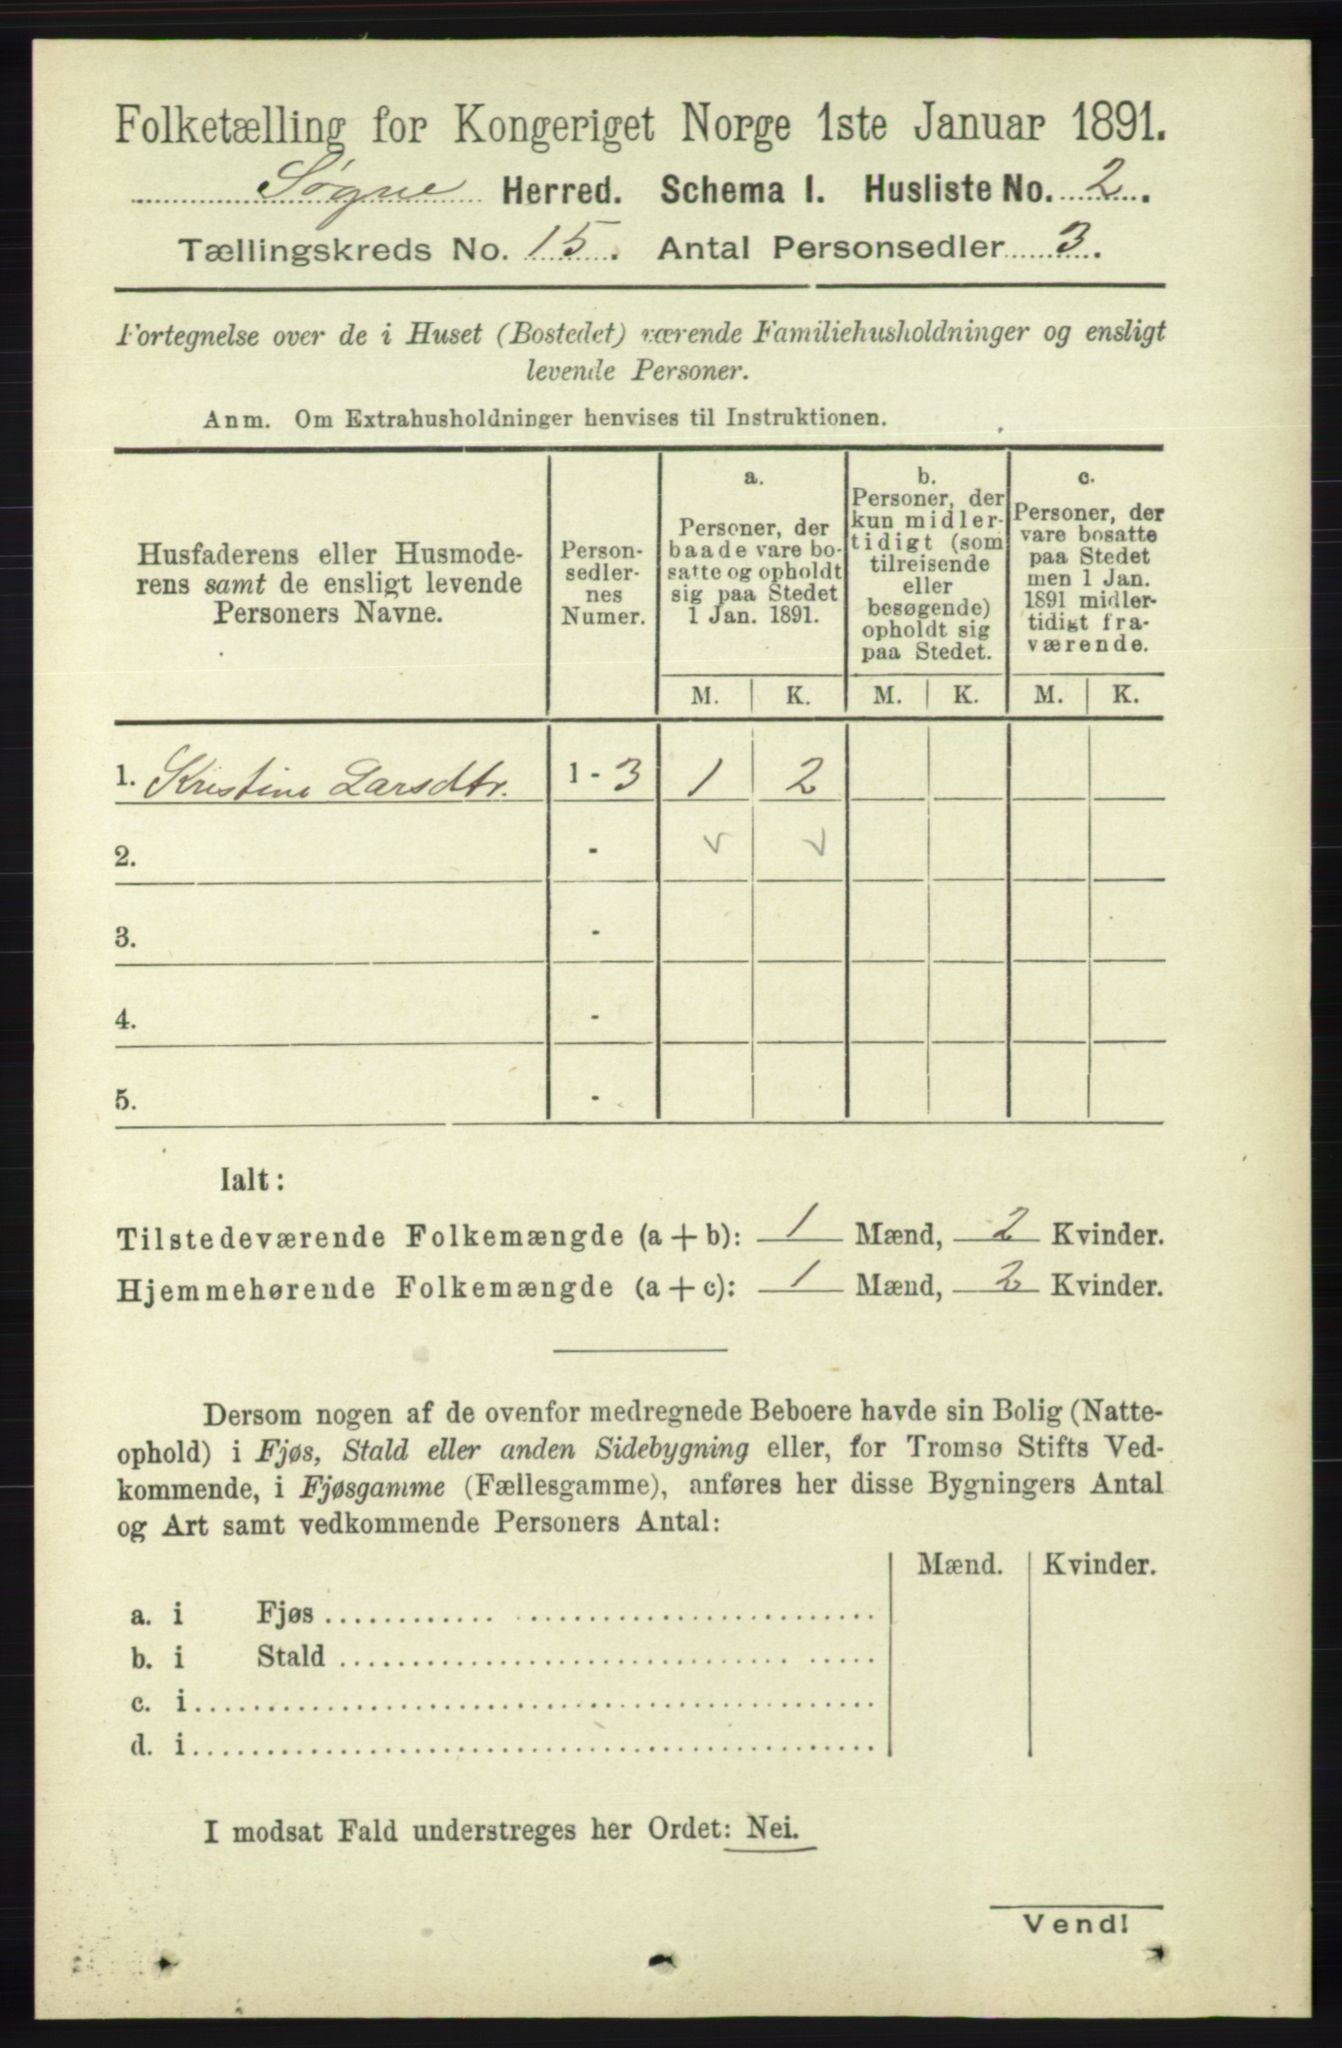 Folketælling for Kongeriget Norge 1ste Januar 1891.
Søgne Herred. Schema I. Husliste No. 2.
Tællingskreds No. 15. Antal Personsedler 3.
Fortegnelse over de i Huset (Bostedet) værende Familiehusholdninger og ensligt
levende Personer.
Anm. Om Extrahusholdninger henvises til Instruktionen.
Husfaderens eller Husmode-
rens samt de ensligt levende
Personers Navne.
Person-
sedler-
nes
Numer.
a.
Personer, der
baade vare bo-
satte og opholdt
sig paa Stedet
1 Jan. 1891.
b.
Personer, der
kun midler-
tidigt (som
tilreisende
eller
besøgende)
opholdt sig
paa Stedet.
c.
Personer, der
vare bosatte
paa Stedet
men 1 Jan.
1891 midler-
tidigt fra-
værende.
M. K. M. K. M. K.
1. Kristine Larsdtr. 1 - 3 1 2
2. -
3. -
4. -
5. -
Ialt:
Tilstedeværende Folkemængde (a + b): 1 Mænd, 2 Kvinder.
Hjemmehørende Folkemængde (a + c): 1 Mænd, 2 Kvinder.
Dersom nogen af de ovenfor medregnede Beboere havde sin Bolig (Natte-
ophold) i Fjøs, Stald eller anden Sidebygning eller, for Tromsø Stifts Ved-
kommende, i Fjøsgamme (Fællesgamme), anføres her disse Bygningers Antal
og Art samt vedkommende Personers Antal:
Mænd. Kvinder.
a. i Fjøs
b. i Stald
c. i
d. i
I modsat Fald understreges her Ordet: Nei.
Vend!